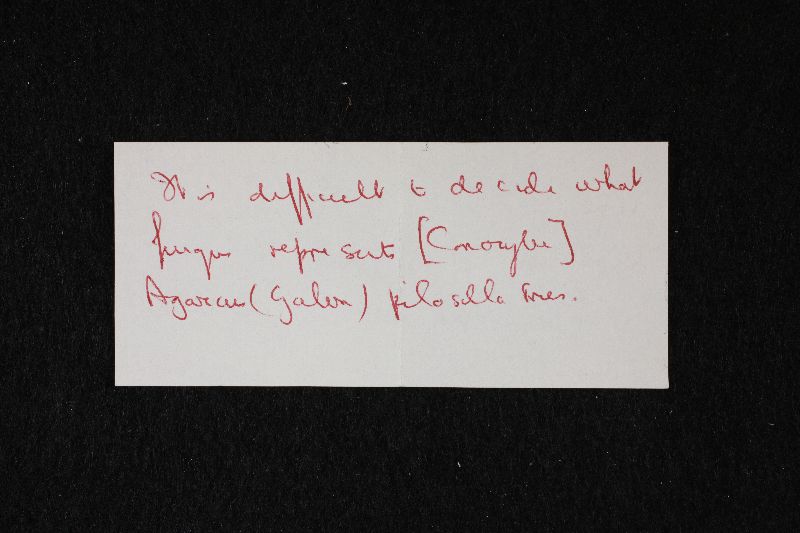 It is difficult to decide what
fungus represents [Conocybe]
Agaricus (Galera) pilosella Pers.